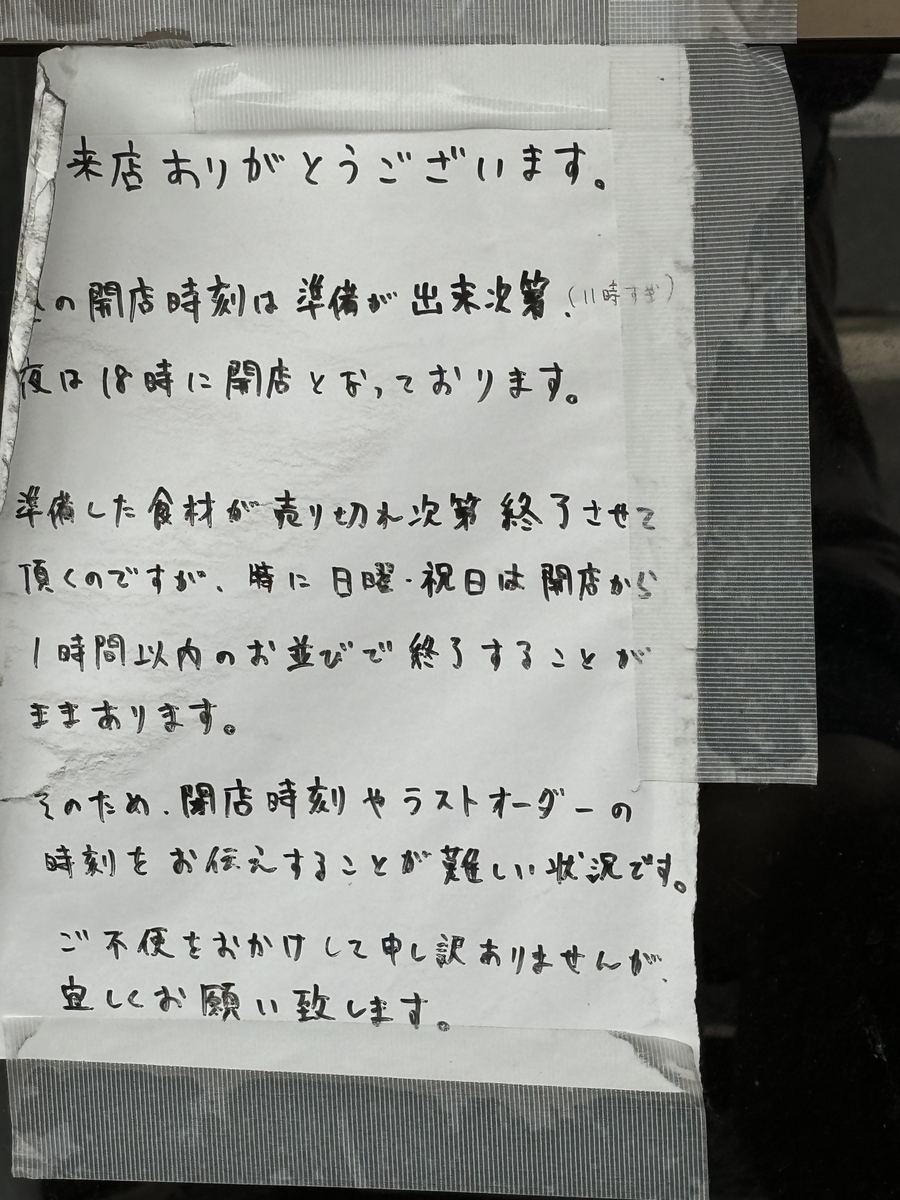 来店ありがとうございます。
の開店時刻は準備が出来次第、(11時すぎ)
夜は18時に開店となっております。
準備した食材が売り切れ次第終了させて
頂くのですが、特に日曜・祝日は開店から
1時間以内のお並びで終了することが
ままあります。
そのため、閉店時刻やラストオーダーの
時刻をお伝えすることが難しい状況です。
ご不便をおかけして申し訳ありませんが、
宜しくお願い致します。